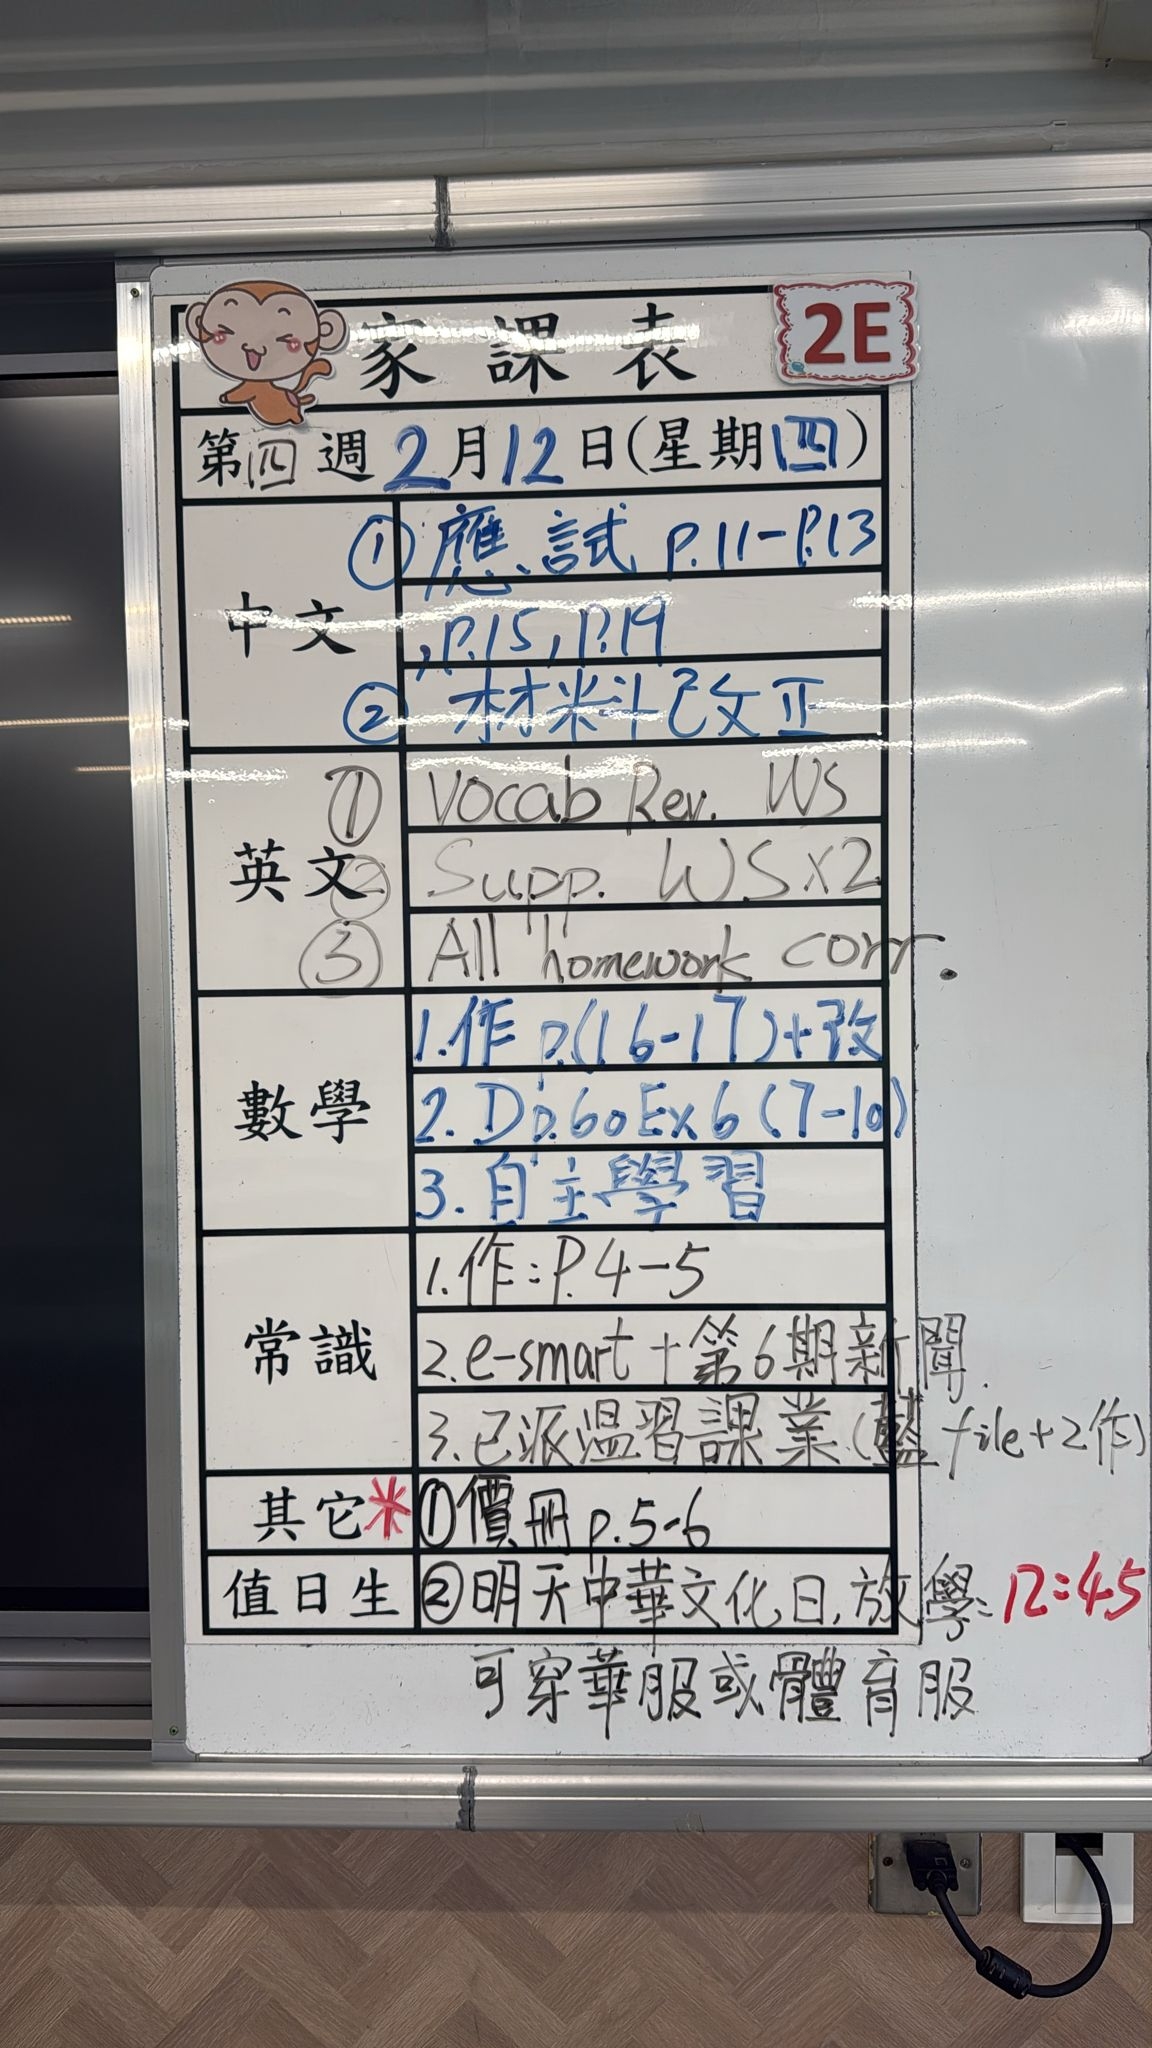 家課表
2E
第四週 2月12日(星期四)
中文
① 應試 p.11-P.13
,P.15,P.19
② 材料改正
英文
① Vocab Rev. WS
② Supp. WSx2
③ All homework corr.
數學
1.作 p.(16-17)+改
2. D p.60 Ex6 (7-10)
3. 自主學習
常識
1.作:P.4-5
2.e-smart+第6期新聞.
3.已派温習課業(藍file+2作)
其它* ①價冊p.5-6
值日生 ②明天中華文化日,放學:12:45
可穿華服或體育服